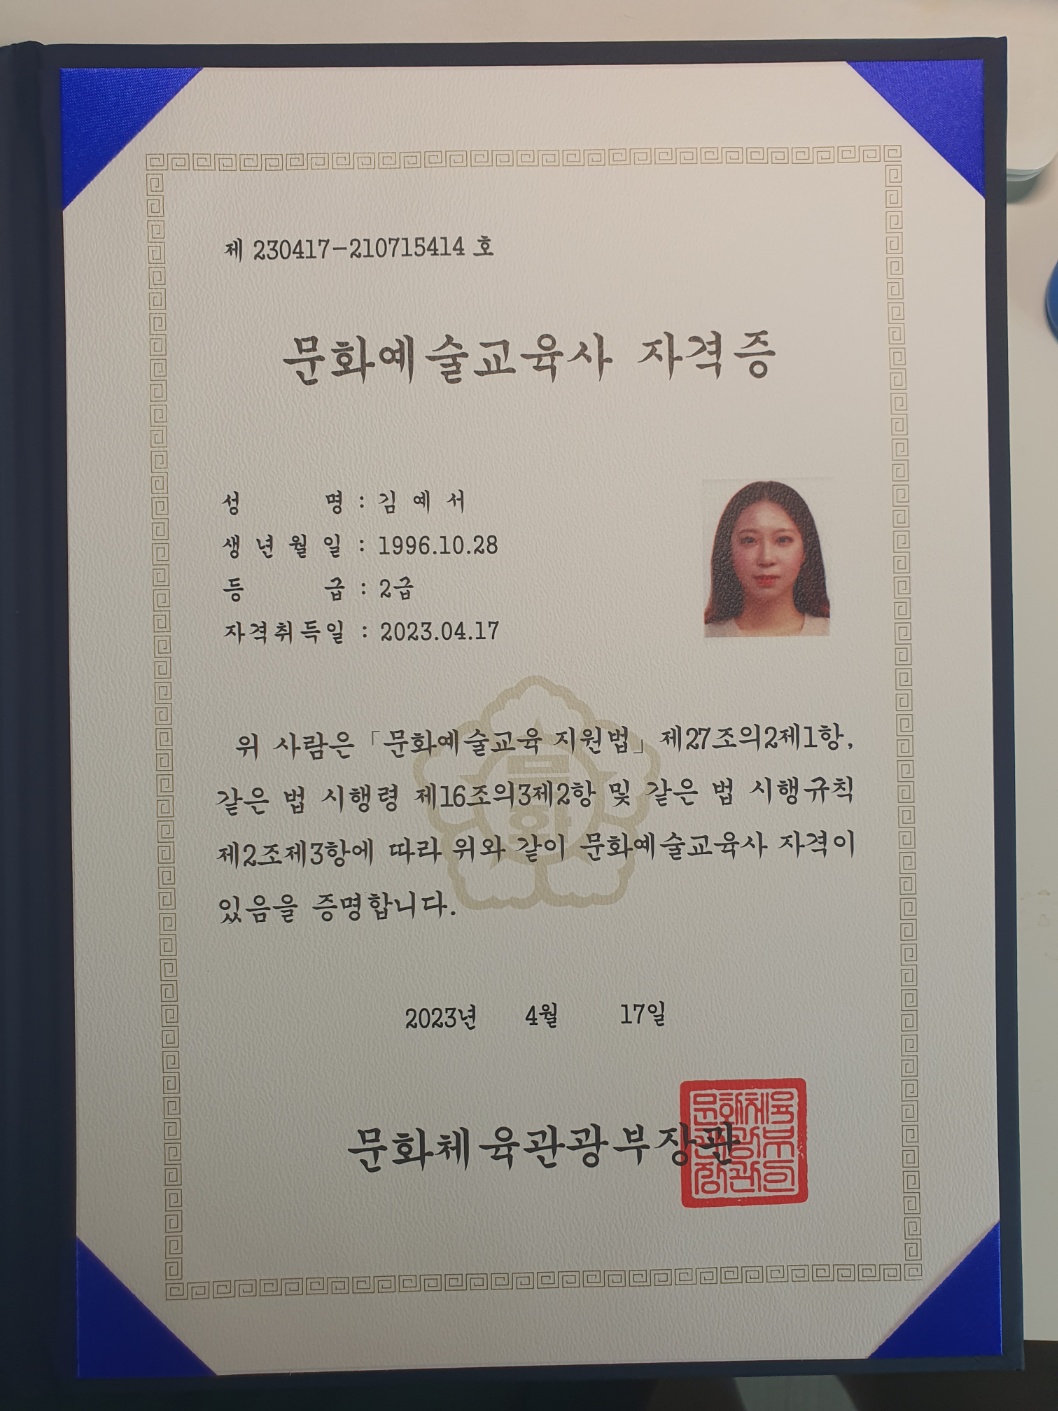 제 230417-210715414 호
문화예술교육사 자격증
성 명 : 김 예 서
생 년 월 일 : 1996.10.28
등 급 : 2급
자격취득일 : 2023.04.17
위 사람은 「문화예술교육 지원법」 제27조의2제1항,
같은 법 시행령 제16조의3제2항 및 같은 법 시행규칙
제2조제3항에 따라 위와 같이 문화예술교육사 자격이
있음을 증명합니다.
문화
2023년 4월 17일
문화체육관광부장관
문화체육
관광부
장관의